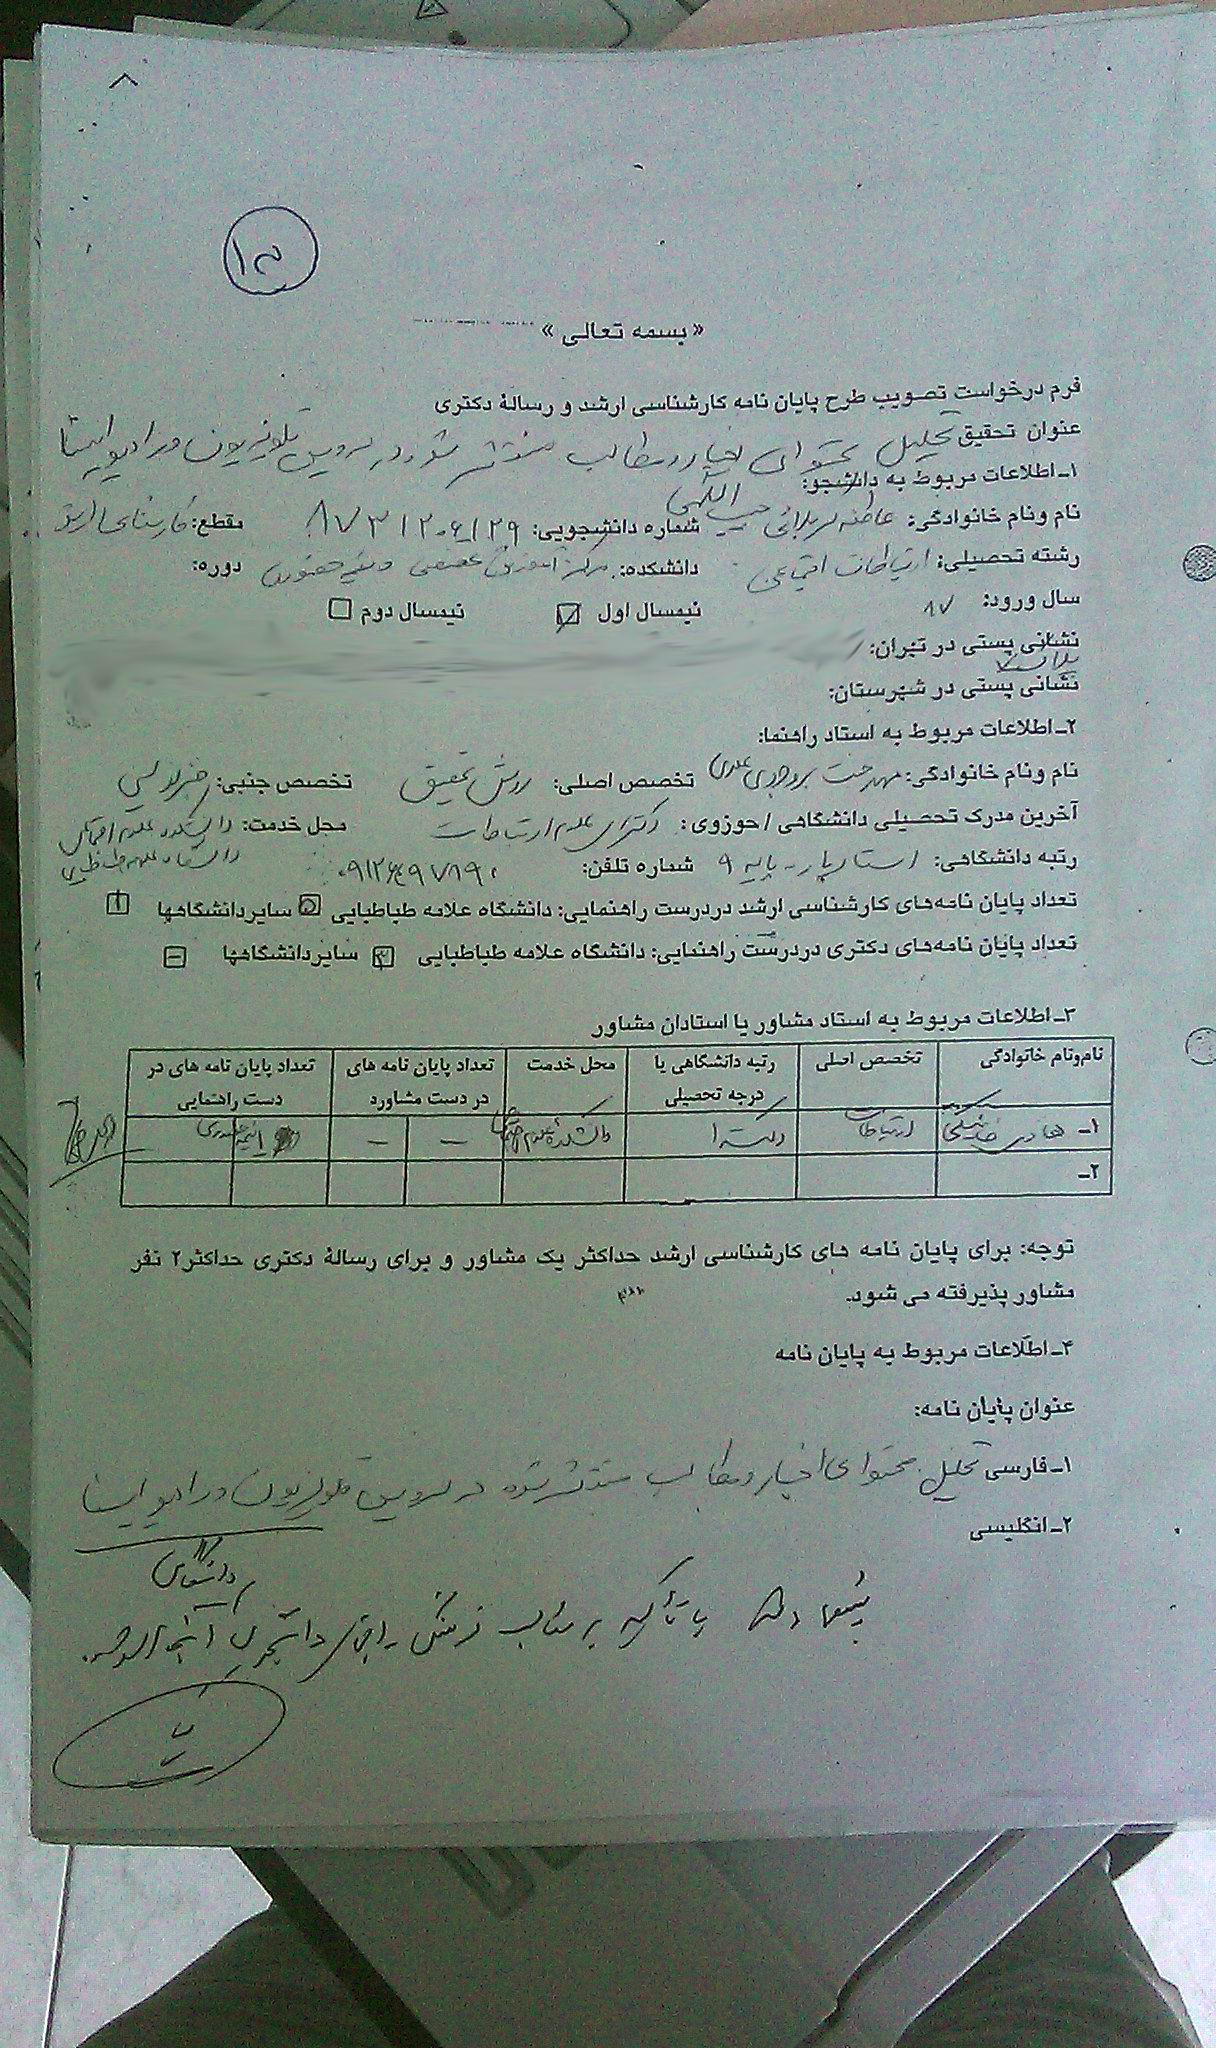 ۱۳
« بسمه تعالی »
فرم درخواست تصویب طرح پایان نامه کارشناسی ارشد و رسالۀ دکتری
عنوان تحقیق تحلیل محتوای اخبار و مطالب منتشر شده در سرویس تلویزیون و رادیو ایسنا
۱ـ اطلاعات مربوط به دانشجو:
نام ونام خانوادگی: عاطفه کربلائی حبیب اللهی شماره دانشجویی: مقطع: کارشناسی ارشد
رشته تحصیلی: ارتباطات اجتماعی دانشکده: مرکز آموزش تخصصی و نیمه حضوری دوره:
سال ورود: ۸۷ نیمسال اول نیمسال دوم
نشانی پستی در تهران:
نشانی پستی در شهرستان:
۲ـ اطلاعات مربوط به استاد راهنما:
نام ونام خانوادگی: مهدخت بروجردی علوی تخصص اصلی: روش تحقیق تخصص جنبی: خبرنویسی
آخرین مدرک تحصیلی دانشگاهی / حوزوی: دکترای علوم ارتباطات محل خدمت: دانشکده علوم اجتماعی
رتبه دانشگاهی: استادیار - پایه ۹ شماره تلفن: دانشگاه علامه طباطبایی
تعداد پایان نامه‌های کارشناسی ارشد دردرست راهنمایی: دانشگاه علامه طباطبایی سایردانشگاهها
تعداد پایان نامه‌های دکتری دردرست راهنمایی: دانشگاه علامه طباطبایی سایردانشگاهها
۳ـ اطلاعات مربوط به استاد مشاور یا استادان مشاور
نام‌ونام خانوادگی تخصص اصلی رتبه دانشگاهی یا درجه تحصیلی محل خدمت تعداد پایان نامه های در دست مشاورد تعداد پایان نامه های در دست راهنمایی
۱ـ هادی خانیکی ارتباطات دکترا دانشکده علوم اجتماعی – –
۲ـ
توجه: برای پایان نامه های کارشناسی ارشد حداکثر یک مشاور و برای رسالۀ دکتری حداکثر ۲ نفر
مشاور پذیرفته می شود.
۴ـ اطلاعات مربوط به پایان نامه
عنوان پایان نامه:
۱ـ فارسی تحلیل محتوای اخبار و مطالب منتشر شده در سرویس تلویزیون و رادیو ایسنا
۲ـ انگلیسی
با تأکید بر مطالب